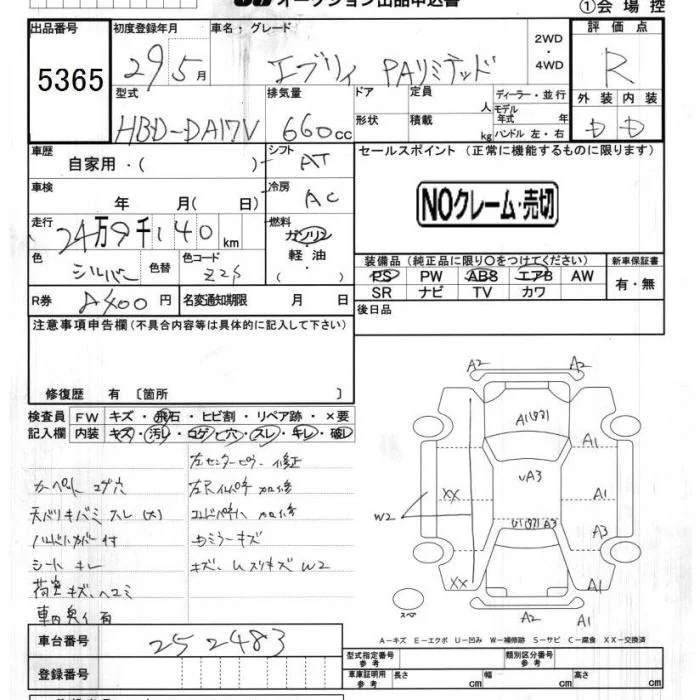 オークション出品申込書
①会場控
出品番号
5365
初度登録年月
29 5月
車名・グレード
エブリィ PAリミテッド
2WD
4WD
評価点
R
型式
HBD-DA17V
排気量
660cc
ドア
形状
定員
人
積載
kg
ディーラー・並行
モデル年式 年
ハンドル 左・右
外装 内装
車歴
自家用・( )
シフト
AT
車検
年 月( 日)
冷房
AC
走行
24万9千140km
燃料
ガソリン
軽油
( )
色
シルバー
色替
色コード
Z2S
R券
円
名変通知期限 月 日
セールスポイント (正常に機能するものに限ります)
NOクレーム・売切
装備品(純正品に限り○をつけてください)
PS PW ABS エアB AW
SR ナビ TV カワ
新車保証書
有・無
後日品
注意事項申告欄(不具合内容等は具体的に記入して下さい)
修復歴 有 〔箇所 〕
検査員記入欄
FW キズ・飛石・ヒビ割・リペア跡・×要
内装 キズ・汚レ・コゲ・穴・スレ・キレ・破レ
左センターピラー修正
カーペット コゲ穴
天バリキバミ スレ(大)
ハンドルカバー付
シート キレ
荷室 キズ、ヘコミ
キズ、ムスリキズ W2
A2 A2
A1
A1
XX
UA3
A1
W2
A3
XX
A1
A2
A1
スペア
A-キズ E-エクボ U-凹み W-補修跡 S-サビ C-腐食 XX-交換済
車台番号
252483
登録番号
型式指定番号
参考
類別区分番号
参考
車庫証明用
参考
長さ cm
幅 cm
高さ cm